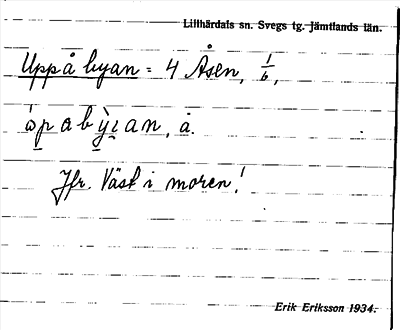 Lillhärdals sn. Svegs tg. Jämtlands län.
Uppå byan = 4 Åsen, 1/6,
å.
Jfr. Väst i moren!
Erik Eriksson 1934.